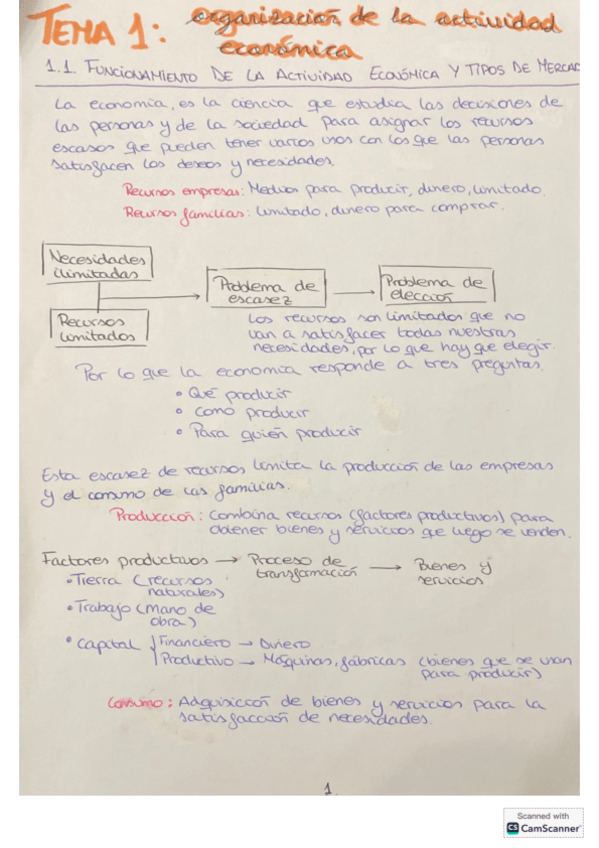 TEMA 1: organización de la actividad
económica
1.1. FUNCIONAMIENTO DE LA ACTIVIDAD ECONÓMICA Y TIPOS DE MERCAD
La economía, es la ciencia que estudia las decisiones de
las personas y de la sociedad para asignar los recursos
escasos que pueden tener varios usos con los que las personas
satisfacen los deseos y necesidades.
Recursos empresas: Medios para producir, dinero, limitado.
Recursos familias: limitado, dinero para comprar.
Necesidades
ilimitadas
Recursos
limitados
Problema de
escasez
Problema de
elección
Los recursos son limitados que no
van a satisfacer todas nuestras
necesidades, por lo que hay que elegir.
Por lo que la economía responde a tres preguntas.
• Qué producir
• Cómo producir
• Para quién producir
Esta escasez de recursos limita la producción de las empresas
y el consumo de las familias.
Producción: Combina recursos (factores productivos) para
obtener bienes y servicios que luego se venden.
Factores productivos → Proceso de
transformación → Bienes y
servicios
• Tierra (recursos
naturales)
• Trabajo (mano de
obra)
• Capital Financiero → Dinero
Productivo → Máquinas, fábricas (bienes que se usan
para producir)
Consumo: Adquisicción de bienes y servicios para la
satisfacción de necesidades.
1
Scanned with
CS CamScanner